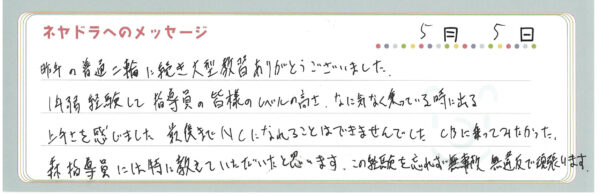 ネヤドラへのメッセージ
5月 5日
昨年の普通二輪に続き大型教習ありがとうございました。
1年弱経験して指導員の皆様のレベルの高さ、なに気なく乗っている時に出る
上手さを感じました 最後までNCになれることはできませんでした CBに乗ってみたかった。
森指導員には特に教えていただいたと思います。この経験を忘れず無事故 無違反で頑張ります。